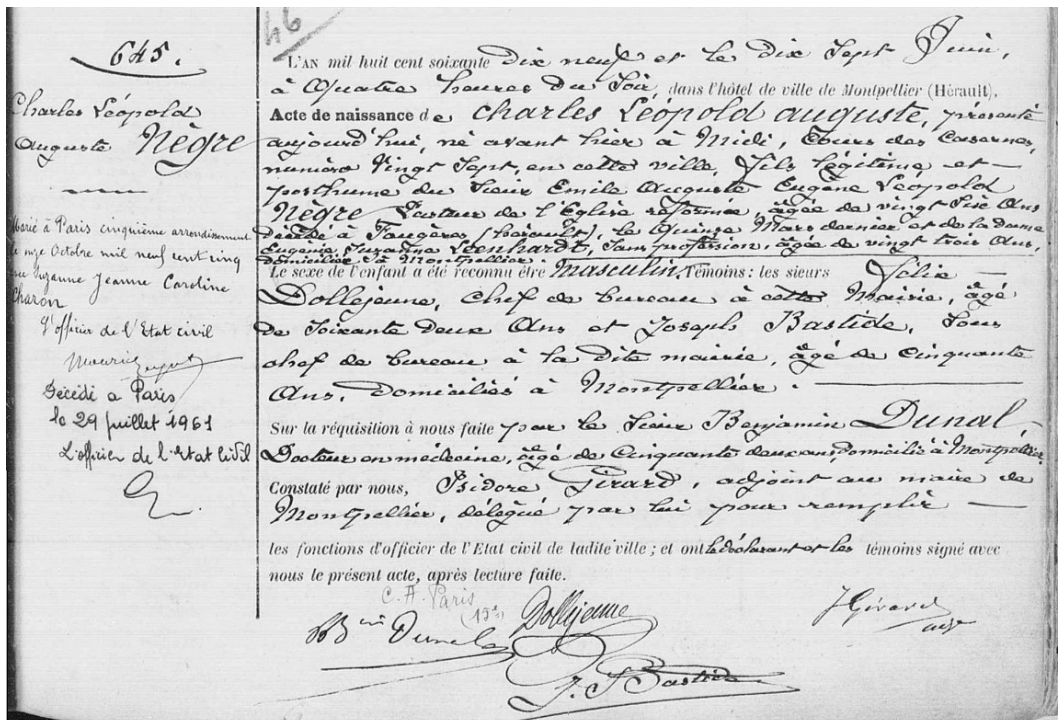 46
645.
Charles Léopold
Auguste Nègre
Marié à Paris cinquième arrondissement
le onze Octobre mil neuf cent cinq
Suzanne Jeanne Caroline
Charon
L'officier de l'Etat civil
Décédé à Paris
le 29 juillet 1961
L'officier de l'Etat Civil
L'AN mil huit cent soixante dix neuf et le Dix Sept Juin,
à Quatre heures du Soir, dans l'hôtel de ville de Montpellier (Hérault),
Acte de naissance de Charles Léopold Auguste, présenté
aujourd'hui, né avant hier à Midi, Cours des Casernes,
numéro Vingt Sept, en cette ville, fils légitime et
posthume du Sieur Emile Auguste Eugène Léopold
Nègre Pasteur de l'Eglise réformée, âgé de vingt six Ans
décédé à Faugères (hérault), le Quinze Mars dernier et de la Dame
Eugénie Suzanne Leenhardt, Sans profession, âgée de vingt trois Ans,
domiciliée à Montpellier.
Le sexe de l'enfant a été reconnu être Masculin Témoins : les sieurs Félix
Dollejeune, Chef de bureau à cette Mairie, âgé
de Soixante Deux Ans et Joseph Bastide, Sous
chef de bureau à la dite mairie, âgé de Cinquante
Ans, domiciliés à Montpellier.
Sur la réquisition à nous faite par le Sieur Benjamin Dunal,
Docteur en médecine, âgé de Cinquante deux ans, Domicilié à Montpellier
Constaté par nous, Isidore Girard, adjoint au maire de
Montpellier, délégué par lui pour remplir
les fonctions d'officier de l'Etat civil de ladite ville ; et ont le déclarant et les témoins signé avec
nous le présent acte, après lecture faite.
C. A. Paris
(15e)
Bin Dunal Dollejeune J Girard
J. Bastide